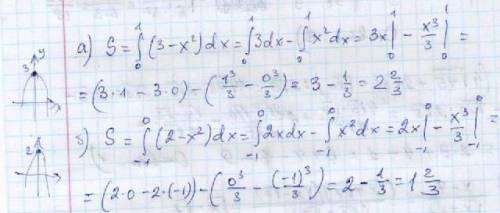 а) S = ∫₀¹ (3 - x²) dx = ∫₀¹ 3dx - ∫₀¹ x² dx = 3x |₀¹ - x³/3 |₀¹ =
= (3·1 - 3·0) - (1³/3 - 0³/3) = 3 - 1/3 = 2 2/3
б) S = ∫₋₁⁰ (2 - x²) dx = ∫₋₁⁰ 2xdx - ∫₋₁⁰ x² dx = 2x |₋₁⁰ - x³/3 |₋₁⁰ =
= (2·0 - 2·(-1)) - (0³/3 - (-1)³/3) = 2 - 1/3 = 1 2/3
3 y x
2